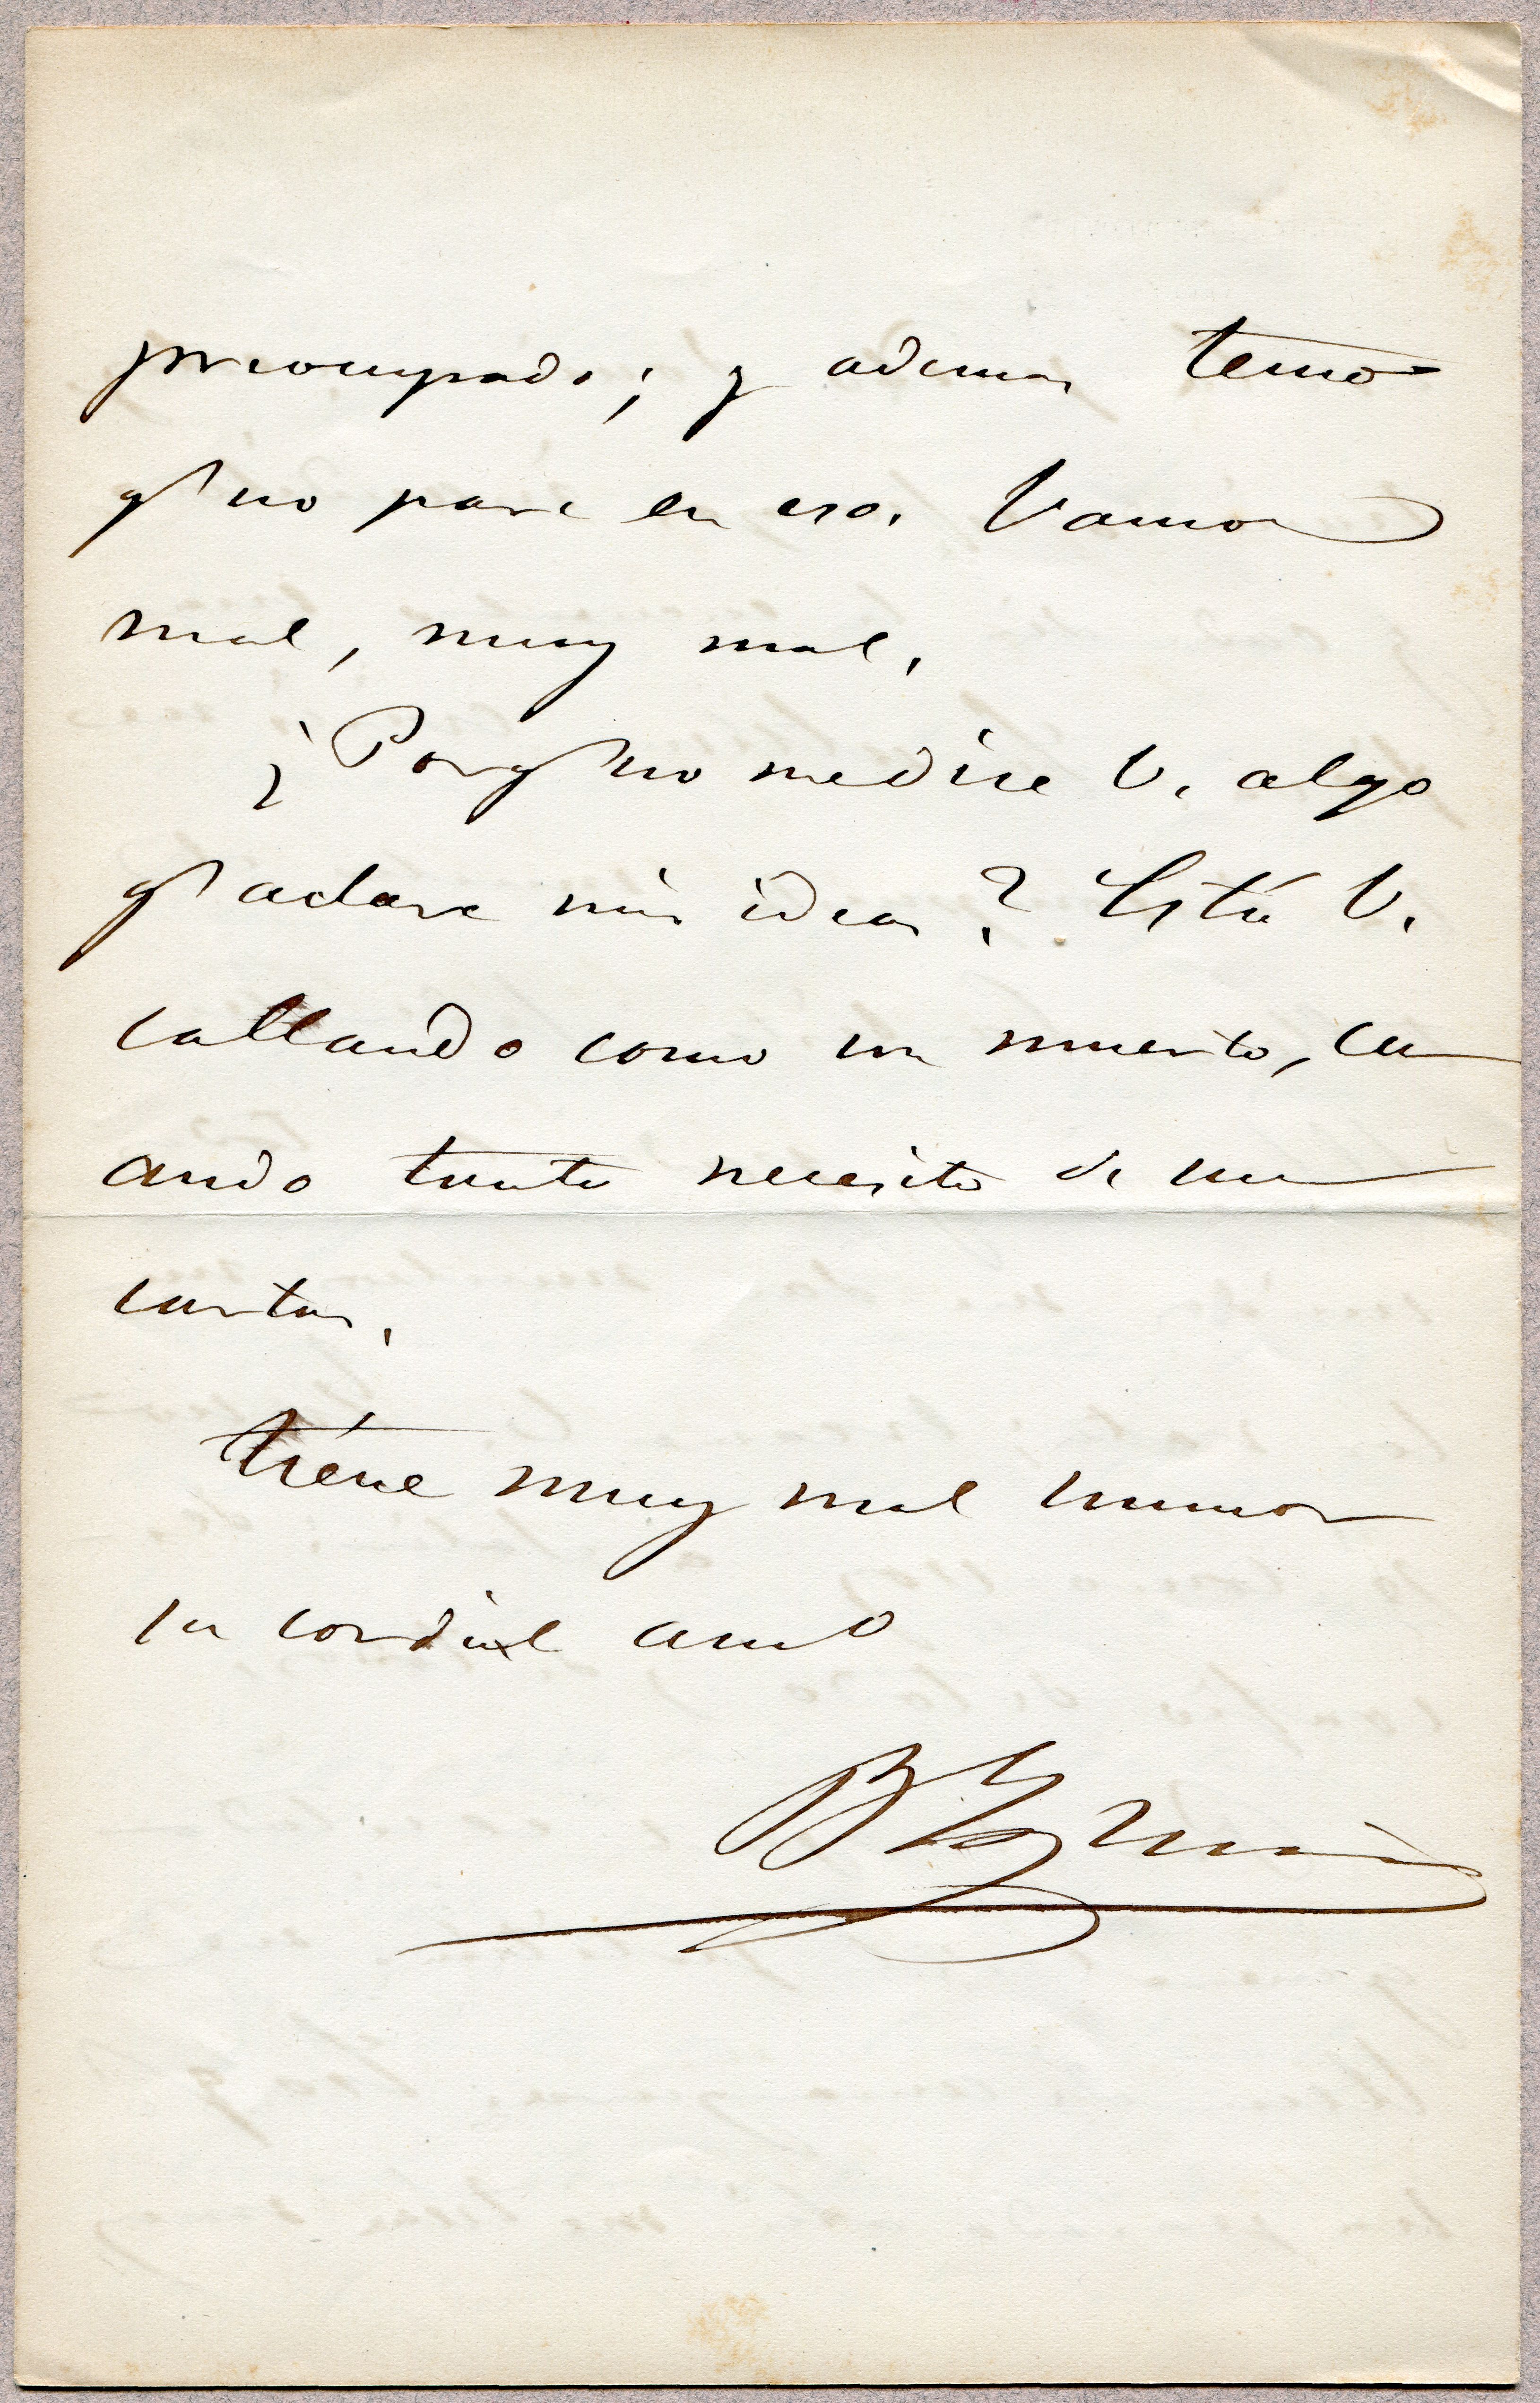 preocupado; y ademas temo
q' no pare en eso. Vamos
mal, muy mal.
¿Porq' no me dice V. algo
q' aclare mis ideas? Está V.
callando como un muerto, cu
ando tanto necesito de sus
cartas.
Tiene muy mal humor
su cordial amo